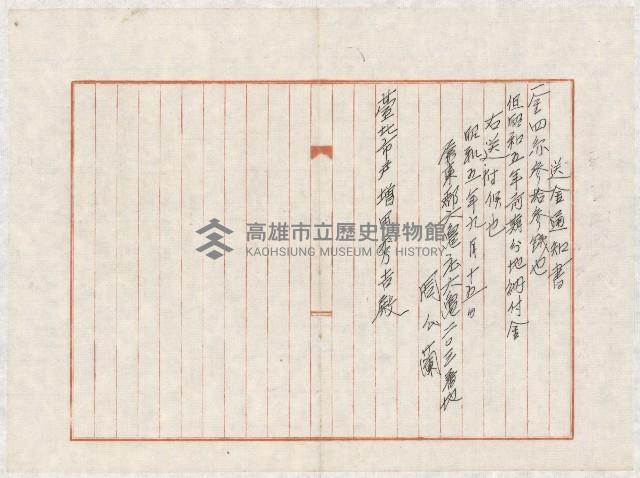 送金通知書
一金四円参拾参銭也
但昭和五年前期分地納付金
右送付候也
昭和五年九月十五日
屏東郡六亀庄六亀二〇三番地
周公蘭
台北市戸増男秀吉殿
高雄市立歷史博物館
KAOHSIUNG MUSEUM OF HISTORY